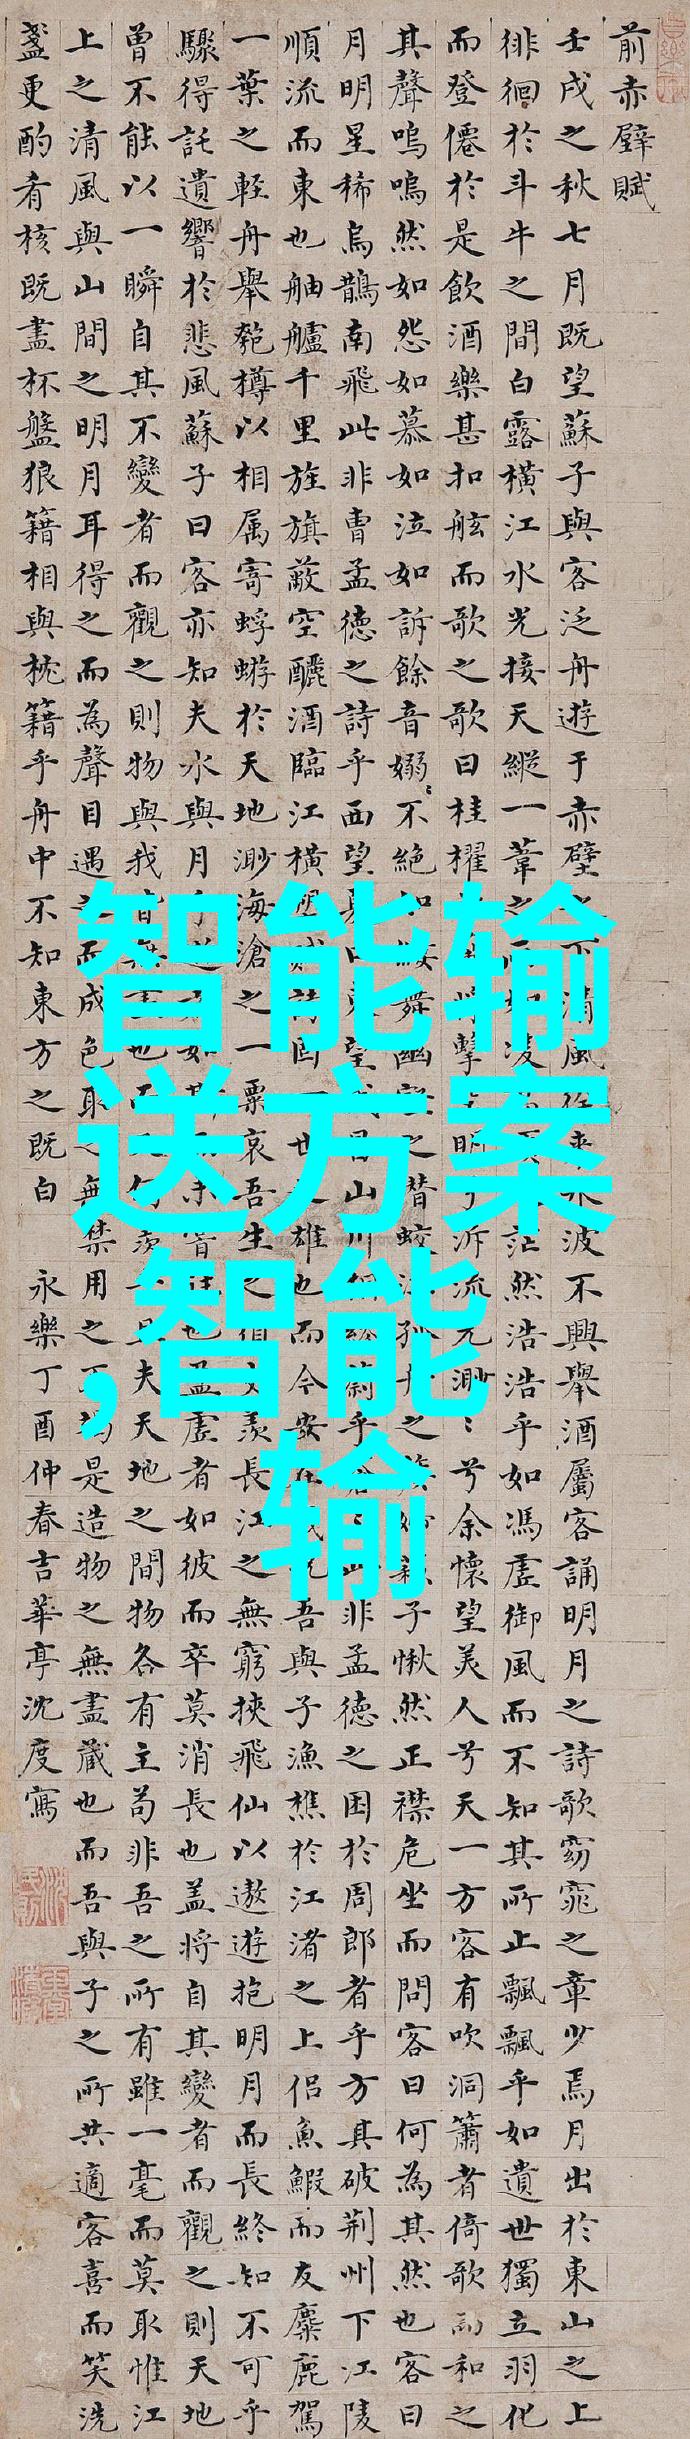 前赤壁賦
壬戌之秋七月既望蘇子與客泛舟遊于赤壁之下清風徐來水波不興舉酒屬客誦明月之詩歌窈窕之章少焉月出於東山之上
徘徊於斗牛之間白露橫江水光接天縱一葦之所如凌萬頃之茫然浩浩乎如馮虛御風而不知其所止飄飄乎如遺世獨立羽化
而登僊於是飲酒樂甚扣舷而歌之歌曰桂櫂擊明兮泝流光渺〻兮余懷望美人兮天一方客有吹洞簫者倚歌而和之
其聲嗚嗚然如怨如慕如泣如訴餘音嫋〻不絕如縷舞幽壑之潛蛟泣孤舟之嫠婦蘇子愀然正襟危坐而問客曰何為其然也客曰
月明星稀烏鵲南飛此非曹孟德之詩乎西望夏口東望武昌山川相繆鬱乎蒼此非孟德之困於周郎者乎方其破荊州下江陵
順流而東也舳艫千里旌旗蔽空釃酒臨江橫槊賦詩固一世之雄也而今安在哉況吾與子漁樵於江渚之上侶魚鰕而友麋鹿駕
一葉之輕舟舉匏樽以相属寄蜉蝣於天地渺海滄之一粟哀吾生之須臾羨長江之無窮挾飛仙以遨遊抱明月而長終知不可乎
驟得託遺響於悲風蘇子曰客亦知夫水與月乎逝者如斯而未嘗往也盈虛者如彼而卒莫消長也盖將自其變者而觀之則天地
曾不能以一瞬自其不變者而觀之則物與我皆無盡也而又何羨乎且夫天地之間物各有主苟非吾之所有雖一毫而莫取惟江
上之清風與山間之明月耳得之而為聲目遇之而成色取之無禁用之不竭是造物之無盡藏也而吾與子之所共適客喜而笑洗
盞更酌肴核既盡杯盤狼籍相與枕籍乎舟中不知東方之既白 永樂丁酉仲春吉華亭沈度寫
智能输
送方案
,智能
输